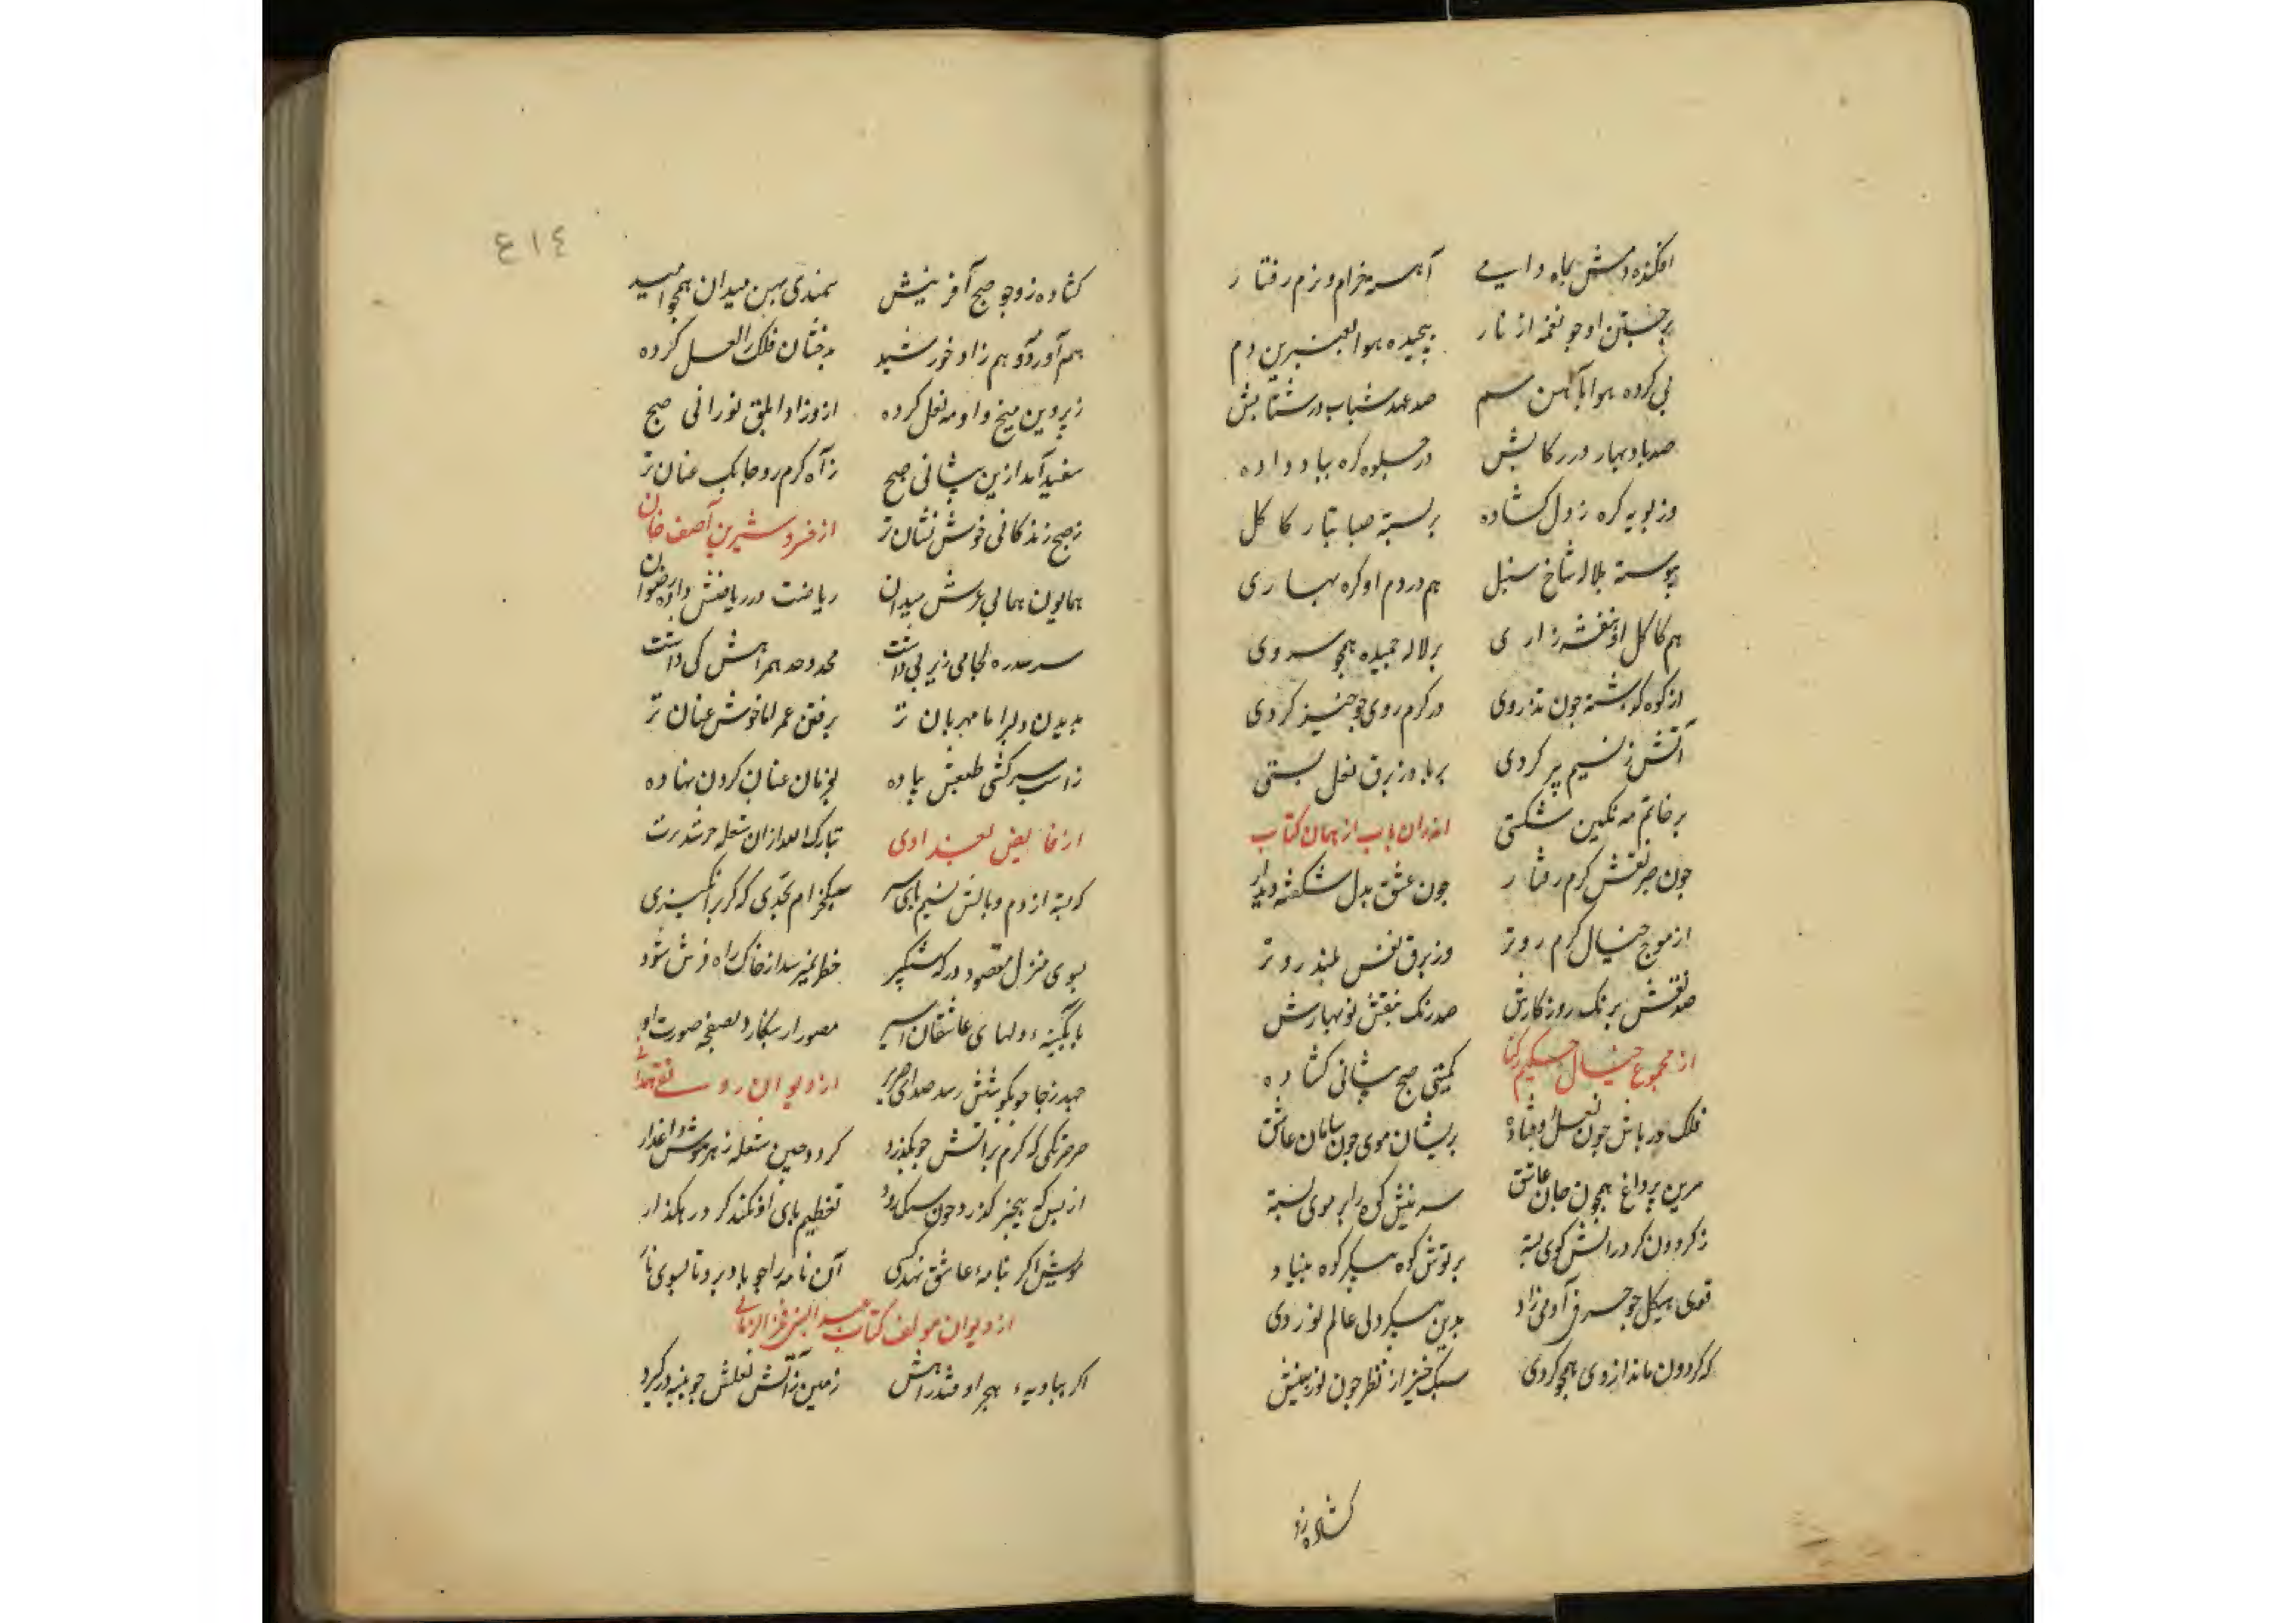 افکنده دمش بجاه وادیے آهسته خرام و نرم رفتار
برجستن او چو نغمه از تار پیچیده هوا بعنبرین دم
پی کرده هوا بآهن سم صد عهد شباب در شتابش
صد باد بهار در رکابش در جلوه کره بباد داده
وز پویه کره ز دل کشاده بر بسته صبا بتار کاکل
پیوسته بلاله شاخ سنبل هم در دم او کره بهاری
هم کاکل او بنفشه زاری بر لاله چمیده همچو سروی
از کوه گذشته چون تذروی در کرم روی چو خیز کردی
آتش ز نسیم پر کردی بر باد ز برق نعل بستی
بر خاتم مه نکین شکستی اندران باب از همان کتاب
چون صرفش کرم رفتار چون عشق بدل شکفته دیدار
از موج خیال کرم روتر وز برق نفس بلند روتر
صد نقش برنک روزکارش صد رنک بنقش نوبهارش
از مجموع خیال حکیم رکنا کمیتی صبح پیشانی کشاده
فلک در پاش چون نعل اوفتاده پریشان موی چون سامان عاشق
سرین پر داغ همچون جان عاشق سرینش کوه را بر موی بسته
ز کردون کرد رانش کوی بسته بر توش کوه پیکر کوه بنیاد
قوی هیکل چو حرف آدمی زاد بدین پیکر ولی عالم نوردی
که کردون ماند از وی همچو کردی سبک خیز از نظر چون نور بینش
کشاده زو
٤١٤
کشاده زو چو صبح آفرینش سمندی پهن میدان همچو امید
هم آورد و هم زاد خورشید بدخشان فلک را لعل کرده
ز پروین میخ و از مه نعل کرده ازو زاد ابلق نورانی صبح
سفید آمد ازین پیشانی صبح ز آه کرم رو چابک عنان تر
ز صبح زندکانی خوش نشان تر از خسرو شیرین آصف خان
همایون همای عرش میدان ریاضت در ریاضش داده رضوان
سر سدره لجامی زیر پی داشت محدود همراهش کی داشت
بدیدن دلبر اما مهربان تر برفتن عمر اما خوش عنان تر
ز اسب سرکشی طبعش پیاده بفرمان عنان کردن نهاده
از فایض بغدادی تبارک الله از ان شعله
که بسته از دم و بالش نسیم پای سبکخرام تجدی که کر برانکیزی
بسوی منزل مقصود در که شبکیر خطر نمیرسد از خاک راه فرش شود
بآبکینه دلهای عاشقان اسیر مصور ار بنکارد بصفحه صورت او
جهد ز جا چو بکوشش رسد صدای صریر از دیوان روسے
صرصر تکی که کرم بر آتش چو بکذرد کردد جبین شعله ز هر موش داغدار
از بس که بیخبر کذرد چون سبک رود تعظیم پای او نکند کرد رهکذار
مویش اکر بنامه عاشق نهد کسی آن نامه را چو باد برد تا بسوی یار
از دیوان مولف کتاب عبد النبی فخر الزمانی
اکر ببادیه هجر اوفتد راهش زمین ز آتش نعلش چو پنبه در کیرد